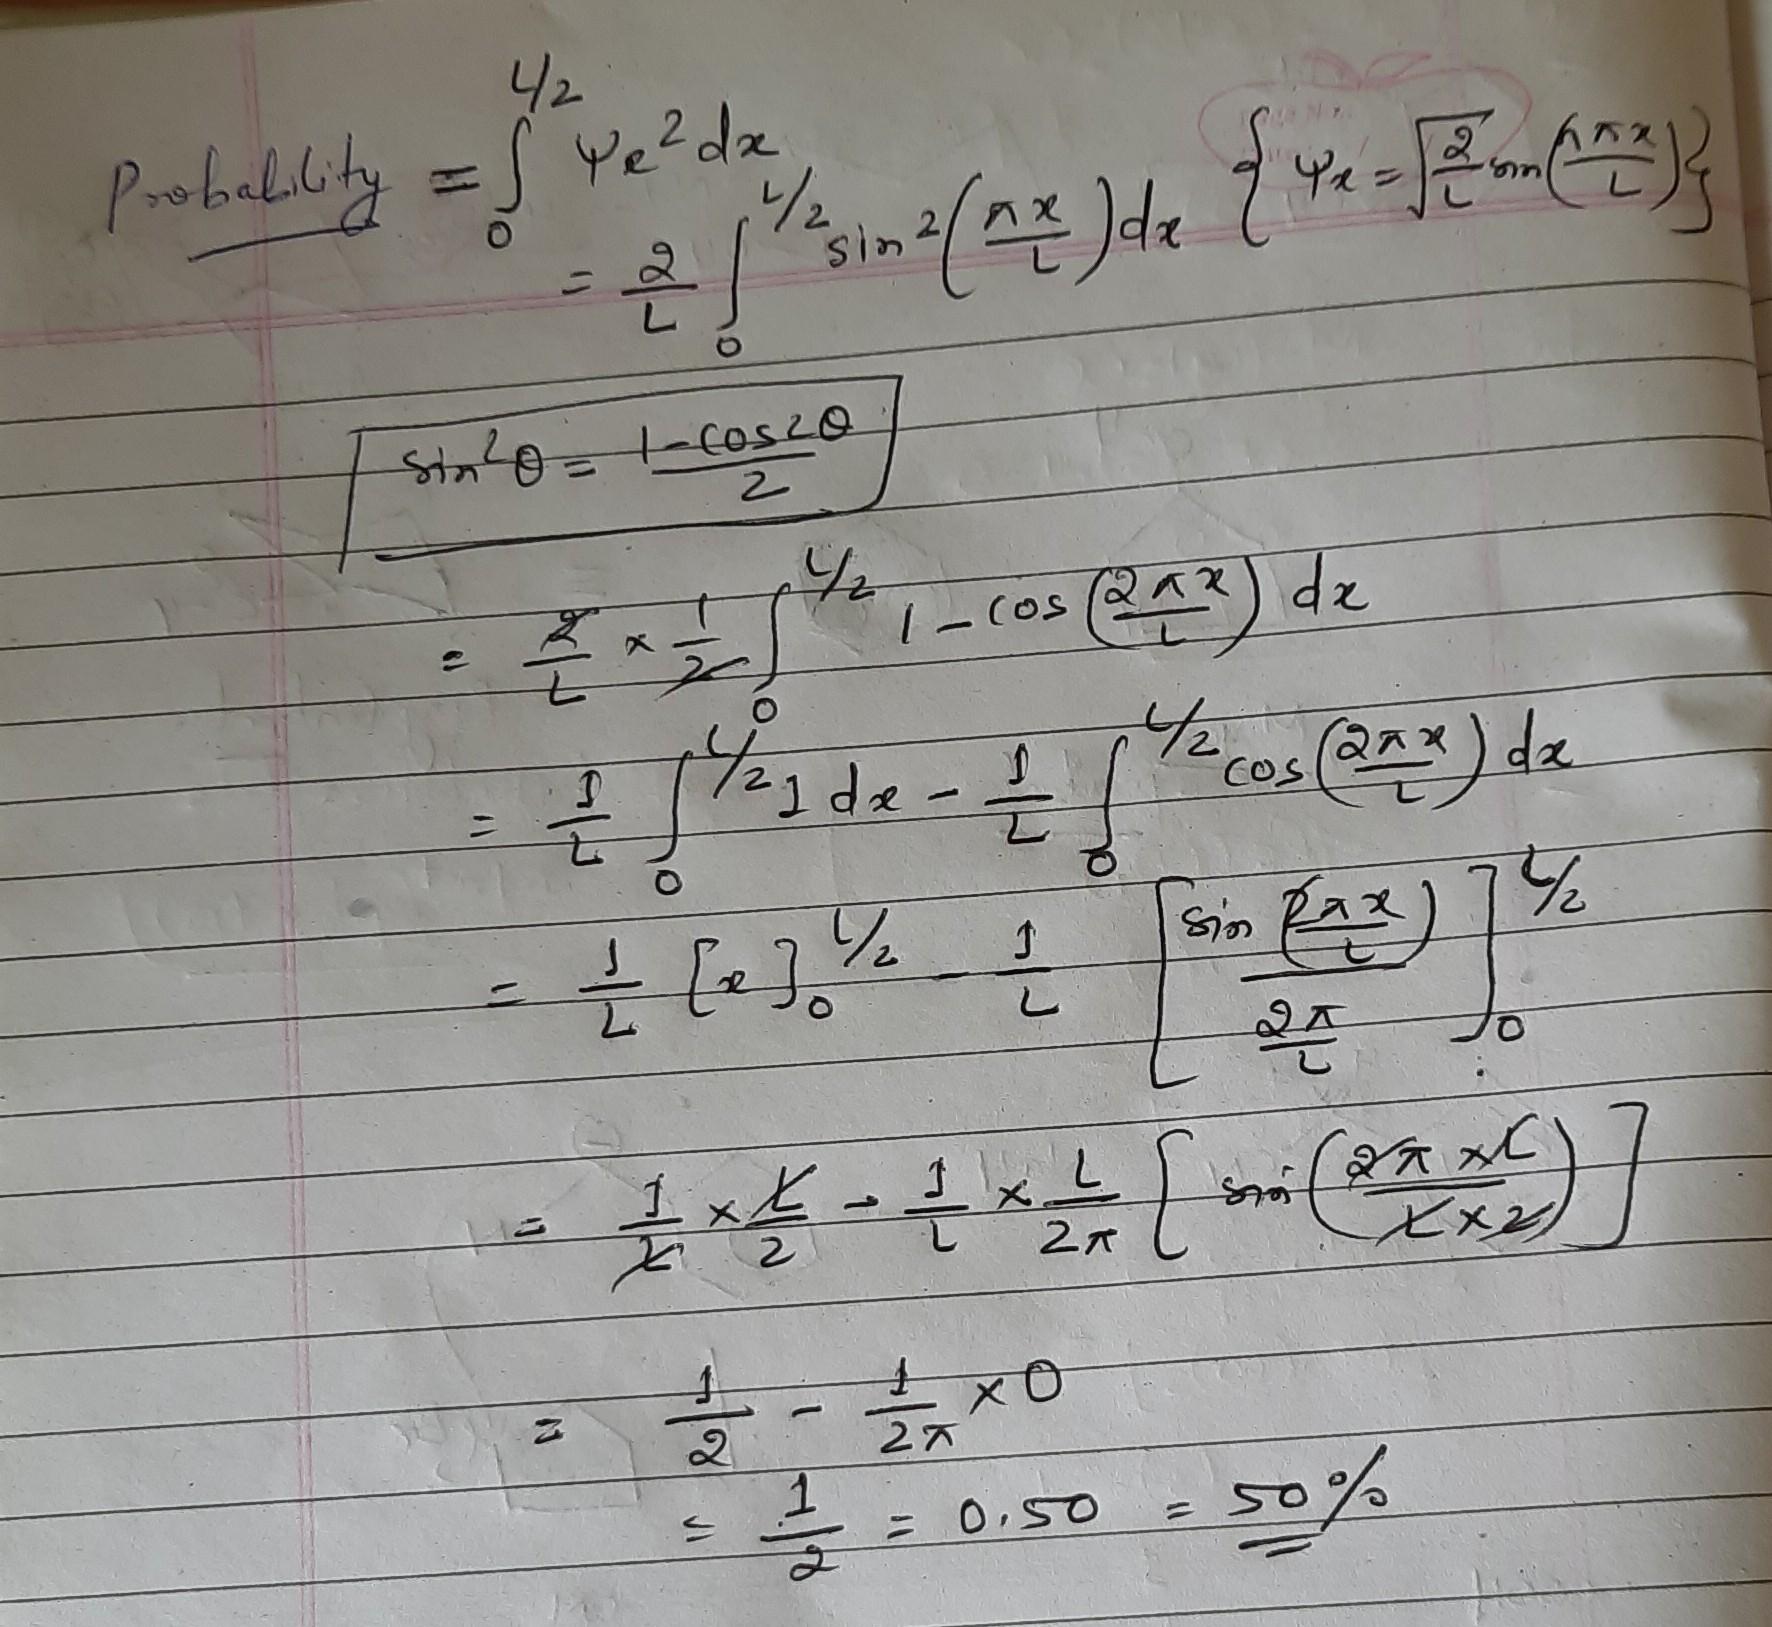 Probability = ∫₀^(L/2) ψx² dx { ψx = √(2/L) sin(nπx/L) }
= 2/L ∫₀^(L/2) sin²(πx/L) dx
sin²θ = (1-cos2θ)/2
= 2/L × 1/2 ∫₀^(L/2) 1 - cos(2πx/L) dx
= 1/L ∫₀^(L/2) 1 dx - 1/L ∫₀^(L/2) cos(2πx/L) dx
= 1/L [x]₀^(L/2) - 1/L [sin(2πx/L) / (2π/L)]₀^(L/2)
= 1/L × L/2 - 1/L × L/2π [sin(2π×L / L×2)]
= 1/2 - 1/2π × 0
= 1/2 = 0.50 = 50%